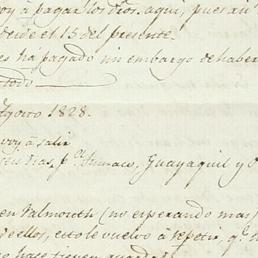 voy á pagar los dros. aqui, pues an
desde el 13 del presente.
es há pagado sin embargo de haber
todo
Agosto 1828.
voy á salir
seis dias, pa. Tumaco, Guayaquil y
en Falmouth (no esperando mas
de ellos, esto le vuelvo á repetir, qe.